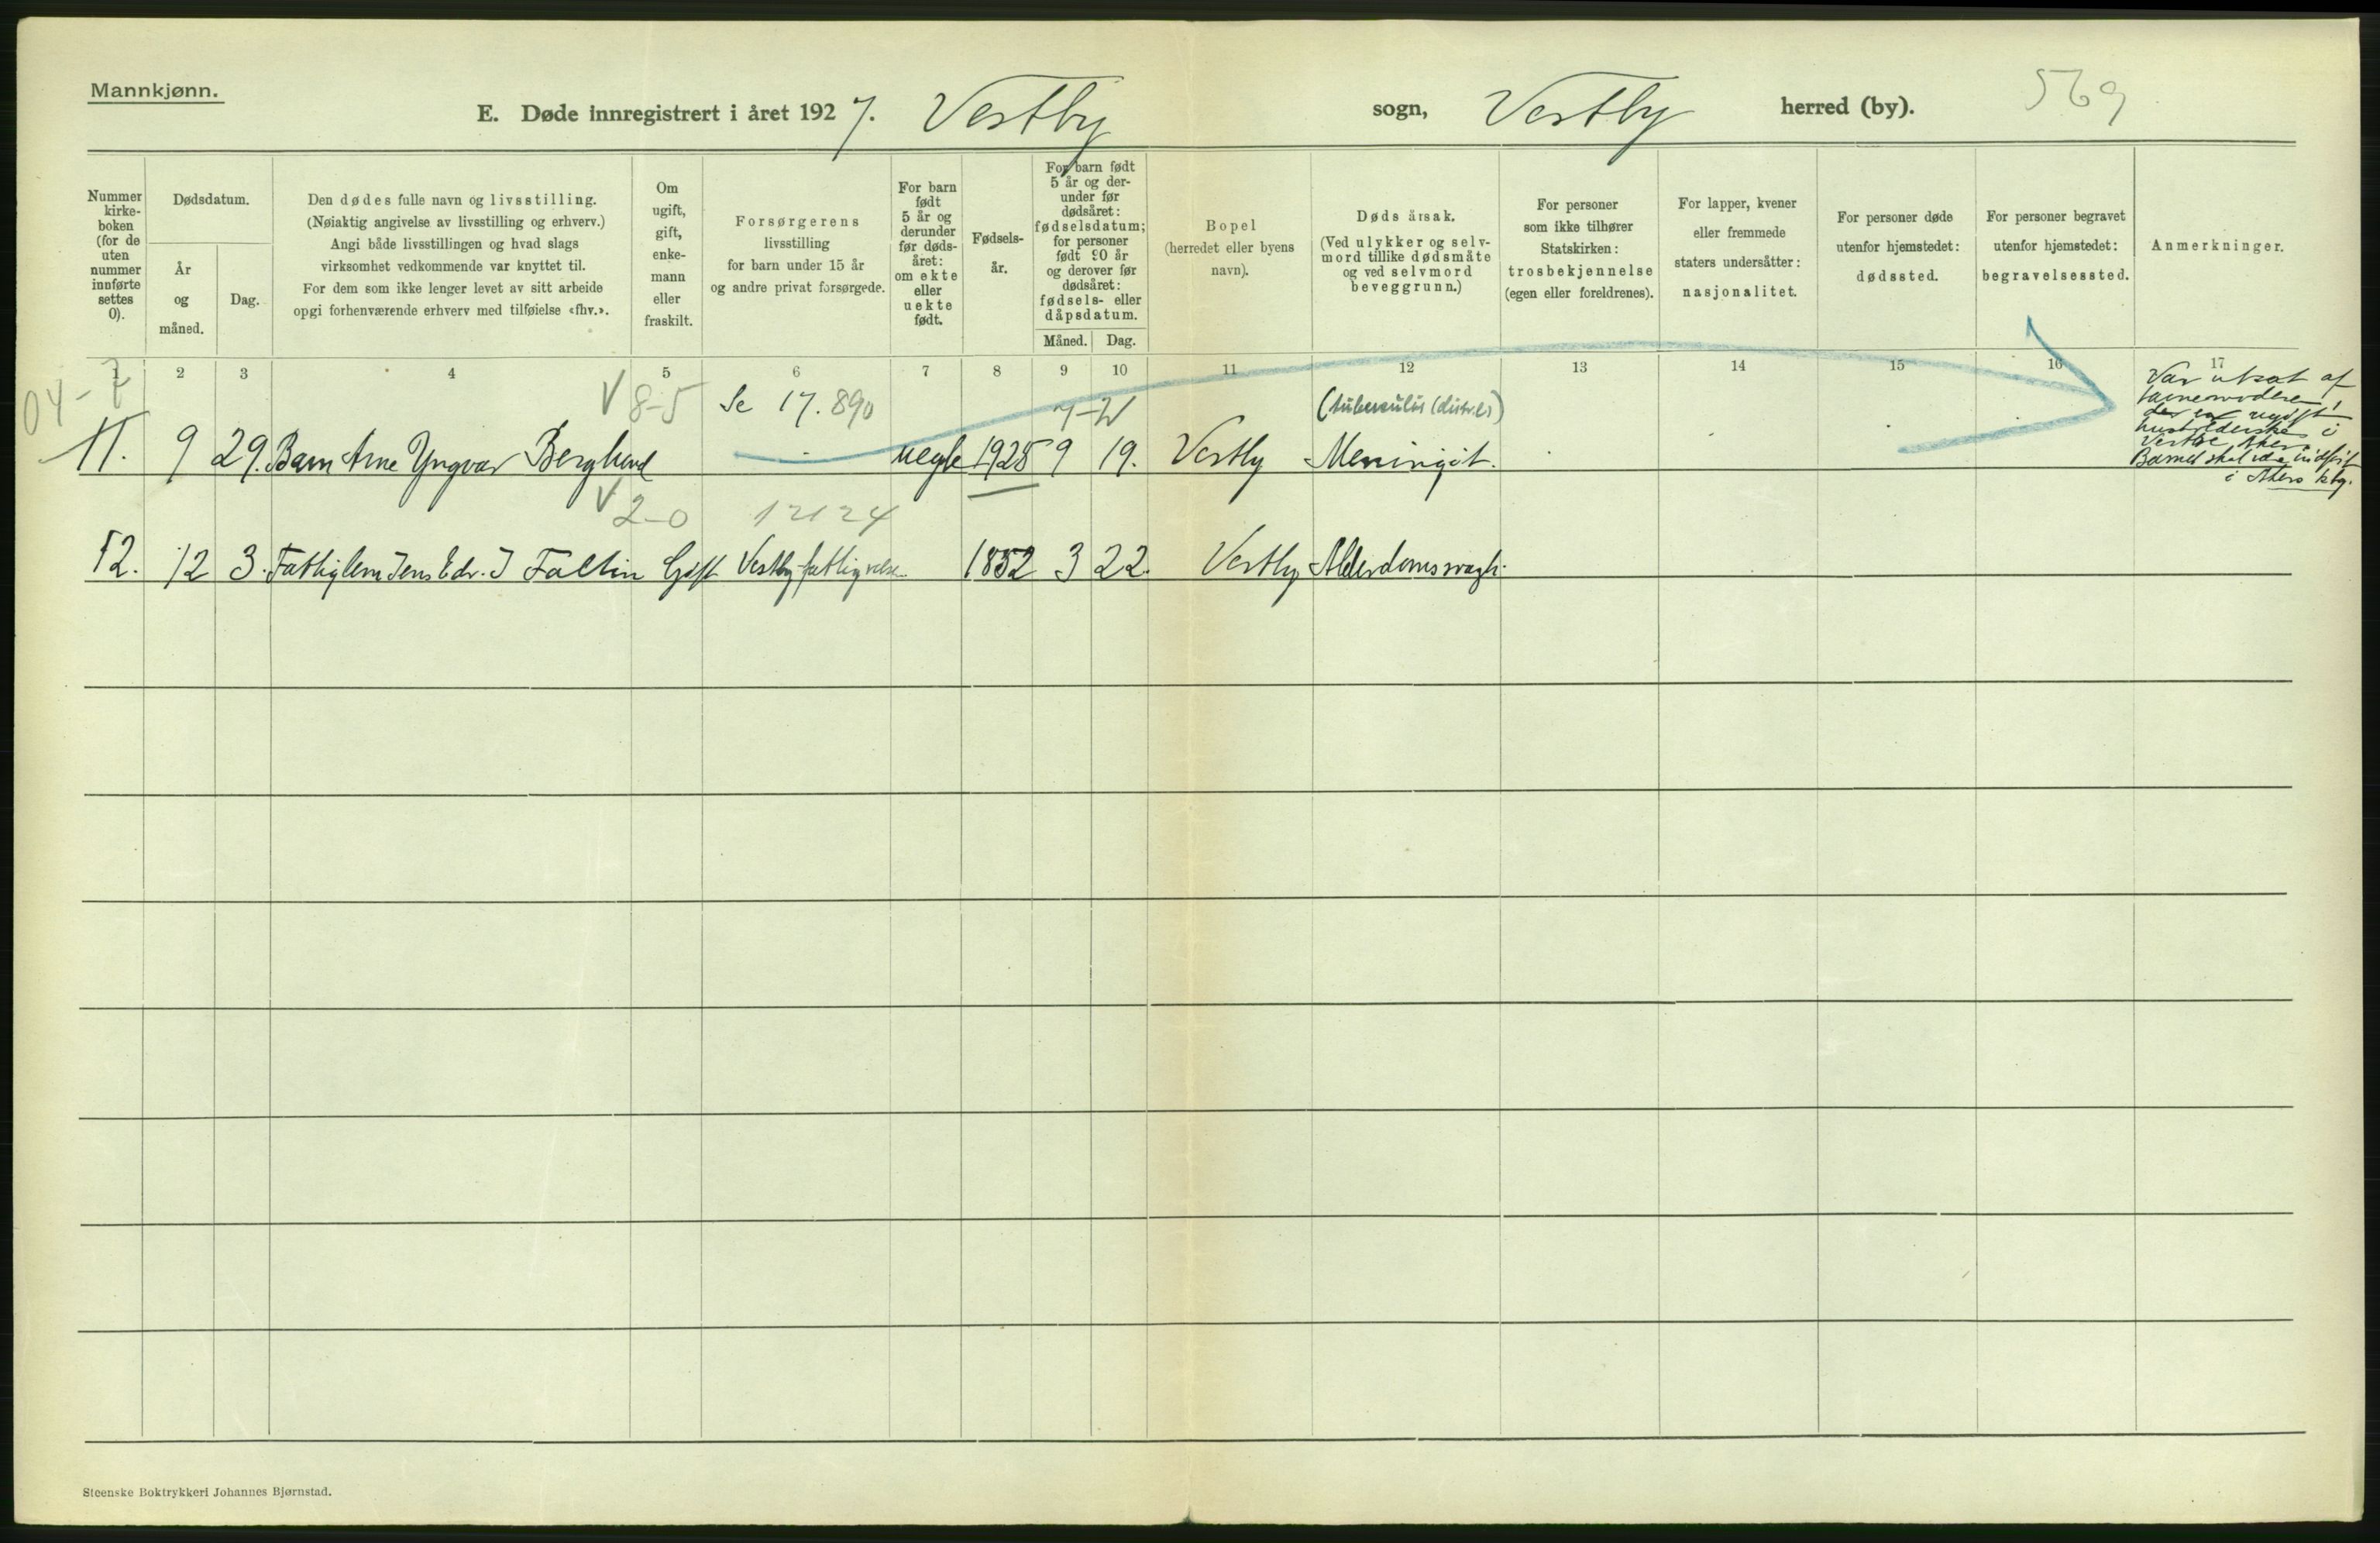 Mannkjønn.
E. Døde innregistrert i året 1927. Vestby sogn, Vestby herred (by). 569
Nummer
kirke-
boken
(for de
uten
nummer
innførte
settes
0).
Dødsdatum.
År
og
måned.
Dag.
Den dødes fulle navn og livsstilling.
(Nøiaktig angivelse av livsstilling og erhverv.)
Angi både livsstillingen og hvad slags
virksomhet vedkommende var knyttet til.
For dem som ikke lenger levet av sitt arbeide
opgi forhenværende erhverv med tilføielse «fhv.».
Om
ugift,
gift,
enke-
mann
eller
fraskilt.
Forsørgerens
livsstilling
for barn under 15 år
og andre privat forsørgede.
For barn
født
5 år og
derunder
før døds-
året:
om ekte
eller
uekte
født.
Fødsels-
år.
For barn født
5 år og der-
under før
dødsåret:
fødselsdatum;
for personer
født 90 år
og derover før
dødsåret:
fødsels- eller
dåpsdatum.
Måned. Dag.
Bopel
(herredet eller byens
navn).
Dødsårsak.
(Ved ulykker og selv-
mord tillike dødsmåte
og ved selvmord
beveggrunn.)
For personer
som ikke tilhører
Statskirken:
trosbekjennelse
(egen eller foreldrenes).
For lapper, kvener
eller fremmede
staters undersåtter:
nasjonalitet.
For personer døde
utenfor hjemstedet:
dødssted.
For personer begravet
utenfor hjemstedet:
begravelsessted.
Anmerkninger.
1 2 3 4 5 6 7 8 9 10 11 12 13 14 15 16 17
04-7 V 8-5 Se 17.890 (tuberculøs (distr.l.)
11. 9 29. Barn Arne Yngvar Berglund - uegte 1925 9 19. Vestby Meningit.
Var utsat af
barnemoderen
der er ugift
i
Aker.
Barnet skal være indført
i Akers kbg.
V 2-0 12124
12. 12 3. Fattiglem Jens Edv. J Faltin Gift Vestby fattigvæsen 1852 3 22. Vestby Alderdomssvagh.
Steenske Boktrykkeri Johannes Bjørnstad.